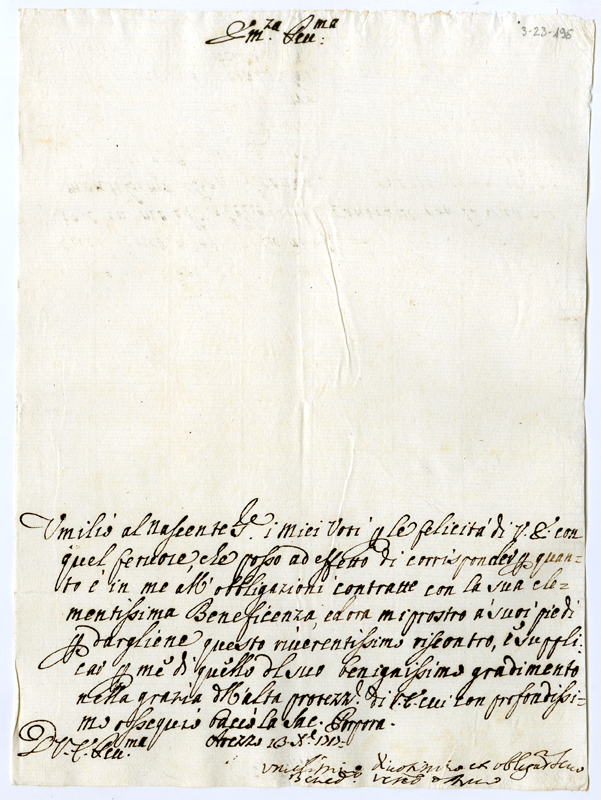 Em.za Reu.ma
3-23-196
Umilio al Nascente Sig.re i miei Voti p le felicità di V. E. con
quel feruore, che posso ad effetto di corrisponder p quan=
to è in me all' obbligazioni contratte con la sua cle=
mentissima Beneficenza, ed ora mi prostro a' suoi piedi
p dargliene questo riuerentissimo riscontro, e suppli
car p me di quello del suo benignissimo gradimento
nella grazia dell' alta protezz.e di V. E. cui con profondissi=
mo ossequio bacio la Sac. Porpora.
D V. E. Reu.ma
Arezzo